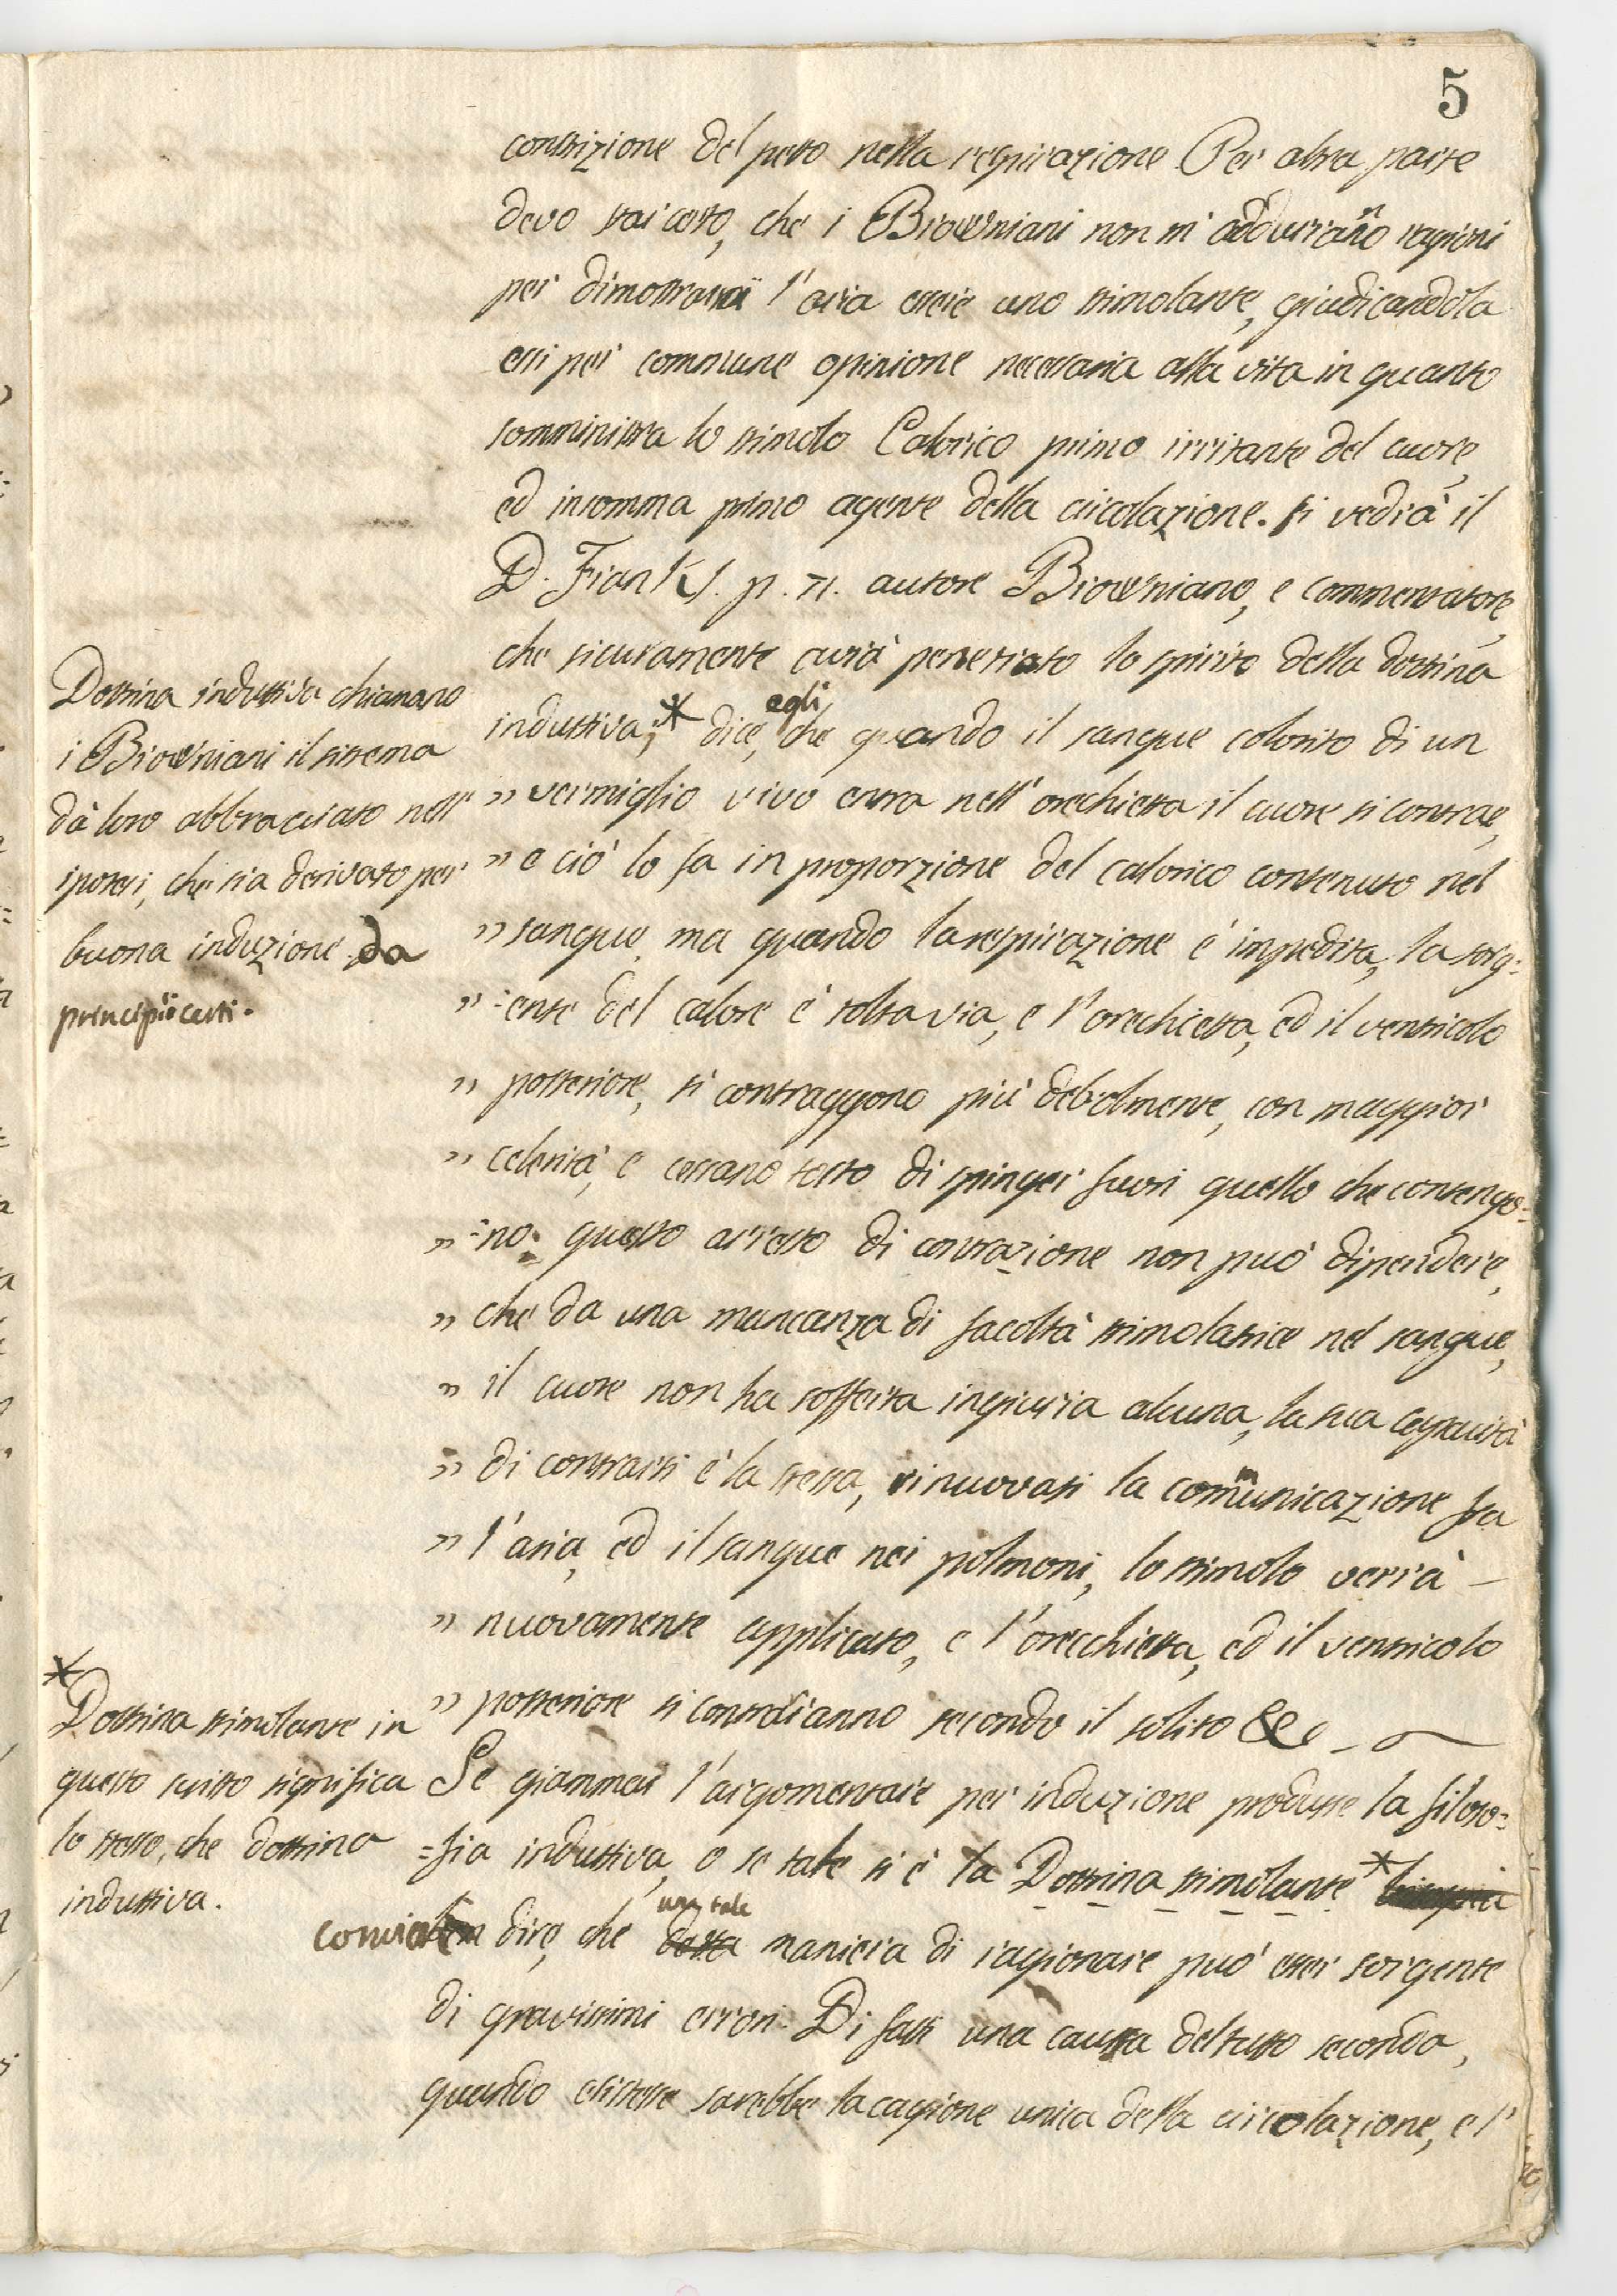 5
constrizione del petto nella respirazione Per altra parte
devo star certo, che i Browniani non m' addurranno ragioni
per dimostrarmi l'aria essere uno stimolante, giudicandola
essi per commune opinione necessaria alla vita in quanto
somministra lo stimolo Calorico primo irritante del cuore,
ed insomma primo agente della circolazione. si vedrà il
D. Frank S. p. 71. autore Browniano, e commentatore,
che sicuramente avrà penetrato lo spirito della dottrina
induttiva;* dice egli, che quando il sangue colorito di un
" vermiglio vivo entra nell' orechietta il cuore si contrae,
" e ciò lo fa in proporzione del calorico contenuto nel
" sangue. ma quando la respirazione è impedita, la sorg=
" =ente del calore è tolta via, e l'orechietta, ed il ventricolo
" posteriore, si contraggono più debolmente, con maggior
" celerità, e cessano tosto di spinger fuori quello che contengo=
" =no. questo arresto di contrazione non può dipendere,
" che da una mancanza di facoltà stimolatrice nel sangue,
" il cuore non ha sofferta ingiuria alcuna, la sua capacità
" di contrarsi è la stessa, rinuovasi la communicazione fra
" l'aria, ed il sangue nei polmoni, lo stimolo verrà -
" nuovamente applicato, e l'orecchietta, ed il ventricolo
" posteriore si contrarianno secondo il solito &c
Se giammai l'argomentare per induzione produsse la filoso=
=fia induttiva, o se tale si è la Dottrina stimolante*
convien dire, che una tale maniera di ragionare può esser sorgente
di gravissimi errori. Di fatti una caussa del tutto seconda,
quando esistesse sarebbe la cagione unica della circolazione, e l'
Dottrina induttiva chiamano
i Browniani il sistema
dà loro abbracciato nell'
ipotesi, che sia derivato per
buona induzione da
principii certi.
*
Dottrina stimolante in
questo scritto significa
lo stesso, che dottrina
induttiva.